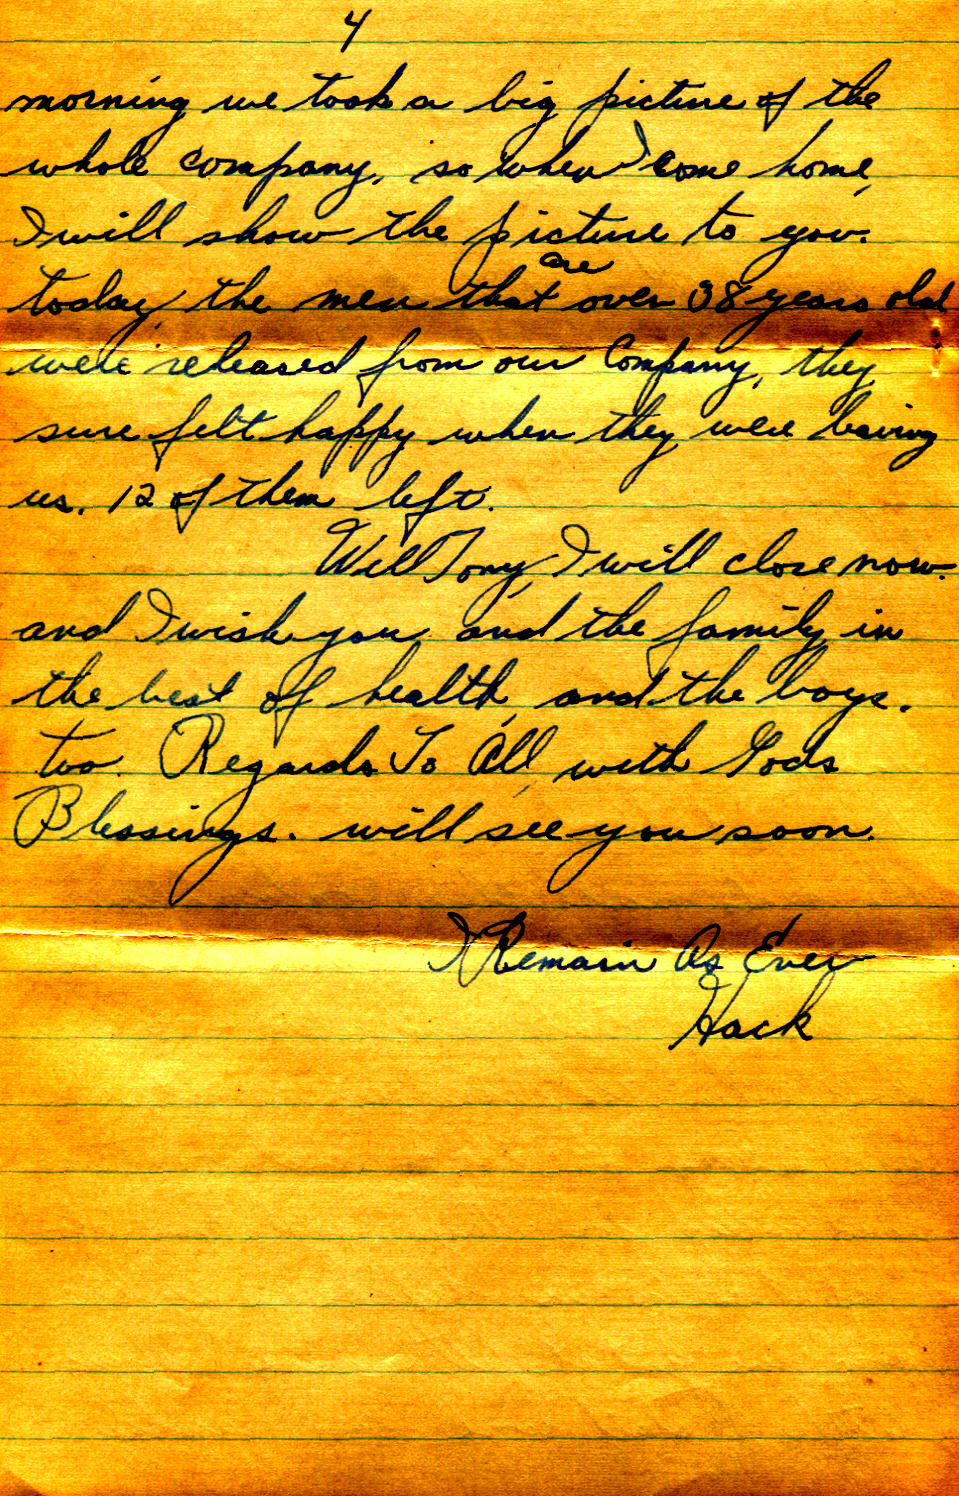 4
morning we took a big picture of the
whole company, so when I come home,
I will show the picture to you.
today, the men that are over 38 years old
were released from our Company, they
sure felt happy when they were leaving
us. 12 of them left.
Well Tony, I will close now.
and I wish you and the family in
the best of health, and the boys.
too. Regards To All, with Gods
Blessings. will see you soon.
I Remain As Ever
Hack